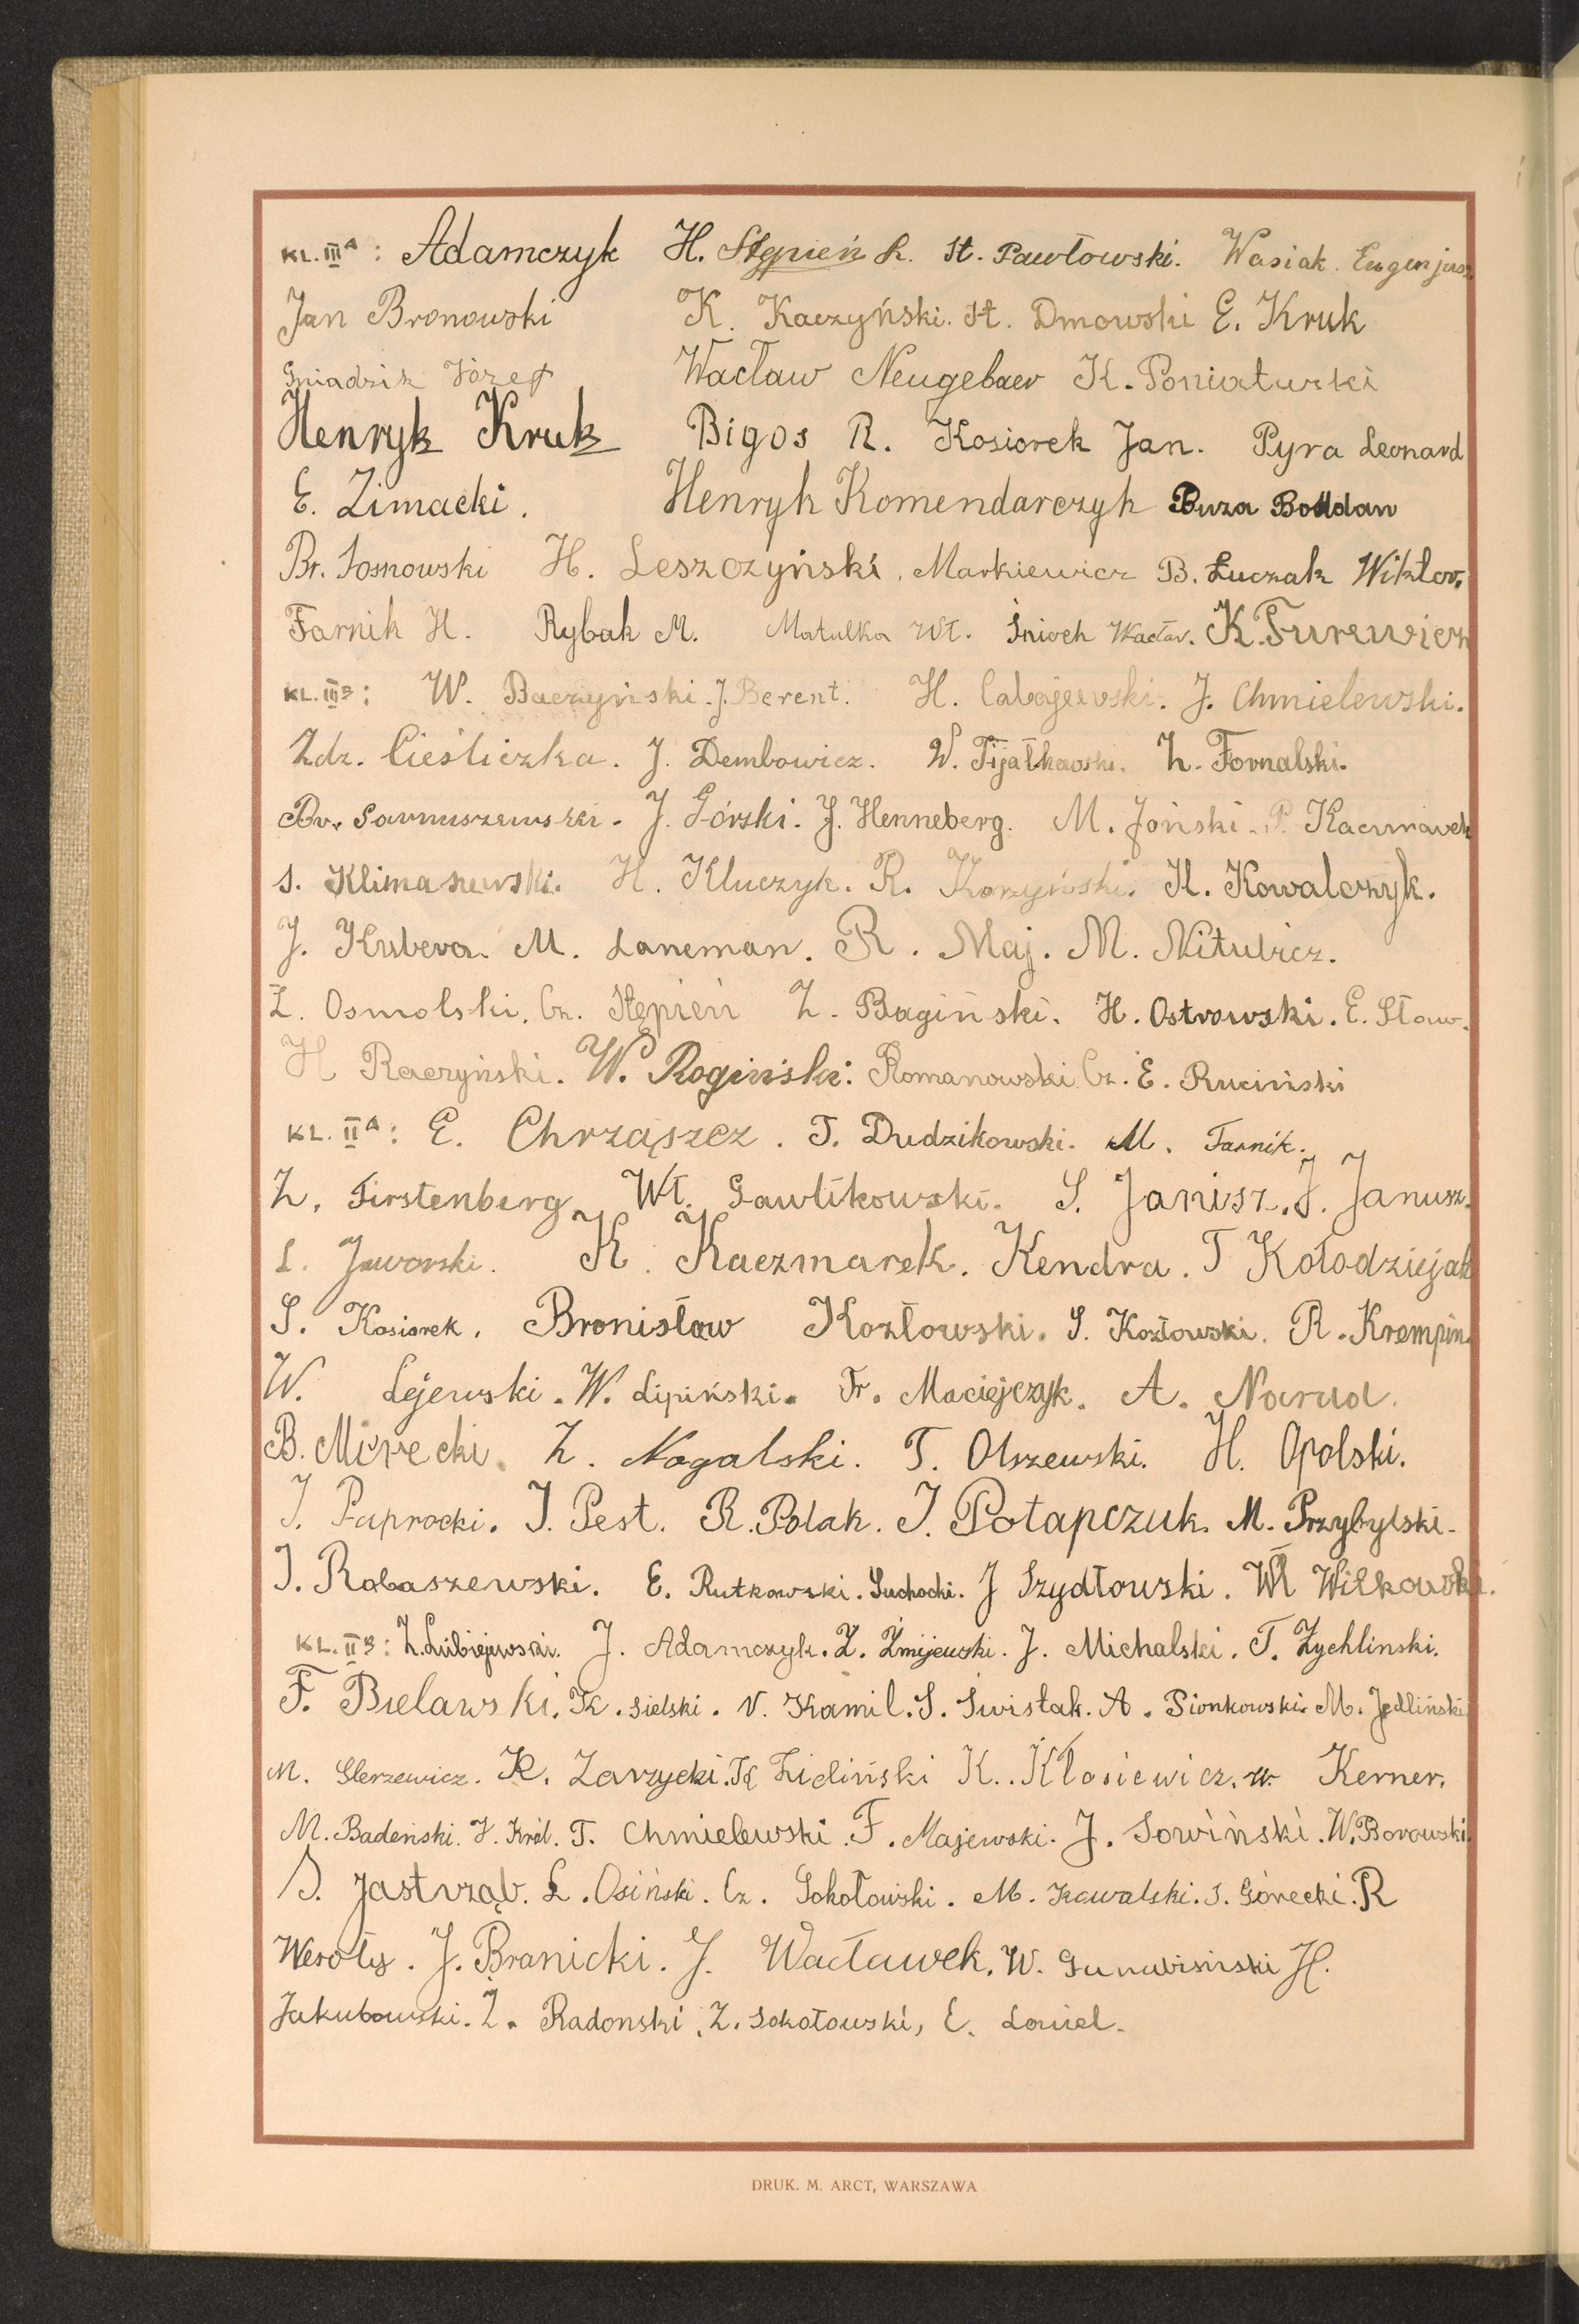 KL. III A: Adamczyk H. Stępień R. St. Pawłowski. Wasiak Eugenjusz
Jan Bronowski K. Kaczyński. St. Dmowski E. Kruk
Gniadzik Józef Wacław Neugebaer K. Poniatowski
Henryk Kruk Bigos R. Kosiorek Jan. Pyra Leonard
E. Zimacki. Henryk Komendarczyk Buza Bohdan
Br. Sosnowski H. Leszczyński. Markiewicz B. Łuczak Wiktor.
Farnik H. Rybak M. Matulka Wł. Śnioch Wacław. K. Turewicz
KL. III B: W. Baczyński. J. Berent. H. Cabajewski. J. Chmielewski.
Zdz. Cieśliczka. J. Dembowicz. W. Fijałkowski. Z. Fornalski.
Br. Garnuszewski. J. Górski. J. Henneberg. M. Joński. P. Kaczmarek
S. Klimaszewski. H. Kluczyk. R. Korzyński. H. Kowalczyk.
J. Kubera. M. Laneman. R. Maj. M. Nitubicz.
Z. Osmolski. Cz. Stępień Z. Bagiński. H. Ostrowski. E. Sław.
H Raczyński. W. Rogiński. Romanowski Cz. E. Ruciński
KL. II A: E. Chrząszcz. T. Dudzikowski. M. Farnik.
Z. Firstenberg Wł. Gawlikowski. S. Janisz. J. Janusz.
L. Jaworski. K. Kaczmarek. Kendra. T Kołodziejak
S. Kosiorek. Bronisław Kozłowski. S. Kozłowski. R. Krempin.
W. Lejewski. W. Lipiński. Fr. Maciejczyk. A. Narud.
B. Mirecki. Z. Nogalski. T. Olszewski. H. Opolski.
J. Paprocki. J. Pest. R. Polak. J. Potapczuk. M. Przybylski.
J. Rabaszewski. E. Rutkowski. Suchocki. J Szydłowski. Wł Witkowski.
KL. II B: Z. Lubiejewski. J. Adamczyk. Z. Żmijewski. J. Michalski. T. Zychlinski.
F. Bielawski. K. Sielski. W. Kamil. S. Świstak. A. Pionkowski. M. Jedliński
M. Glerzewicz. K. Zarzycki. K Zieliński K. Kłosiewicz. W. Kerner.
M. Badeński. J. Król. T. Chmielewski. F. Majewski. J. Sowiński. W. Borowski.
S. Jastrząb. L. Osiński. Cz. Sokołowski. M. Kowalski. S. Górecki. R
Wesoły. J. Branicki. J. Wacławek. W. H.
Jakubowski. Z. Radonski. Z. Sokołowski, E. Loniel.
DRUK. M. ARCT, WARSZAWA